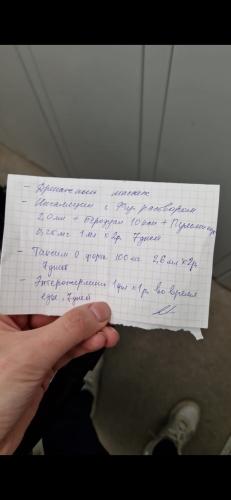 - Дренажный массаж
- Ингаляции с Физ. раствором
2,0 мл + Беродуал 10 кап + Пульмикорт
0,25 мг 1 мл x 2р 7 дней
- Таксим О форте 100 мг 2,6 мл x 2р
7 дней
- Энтерожермина 1 фл x 1р во время
еды, 7 дней